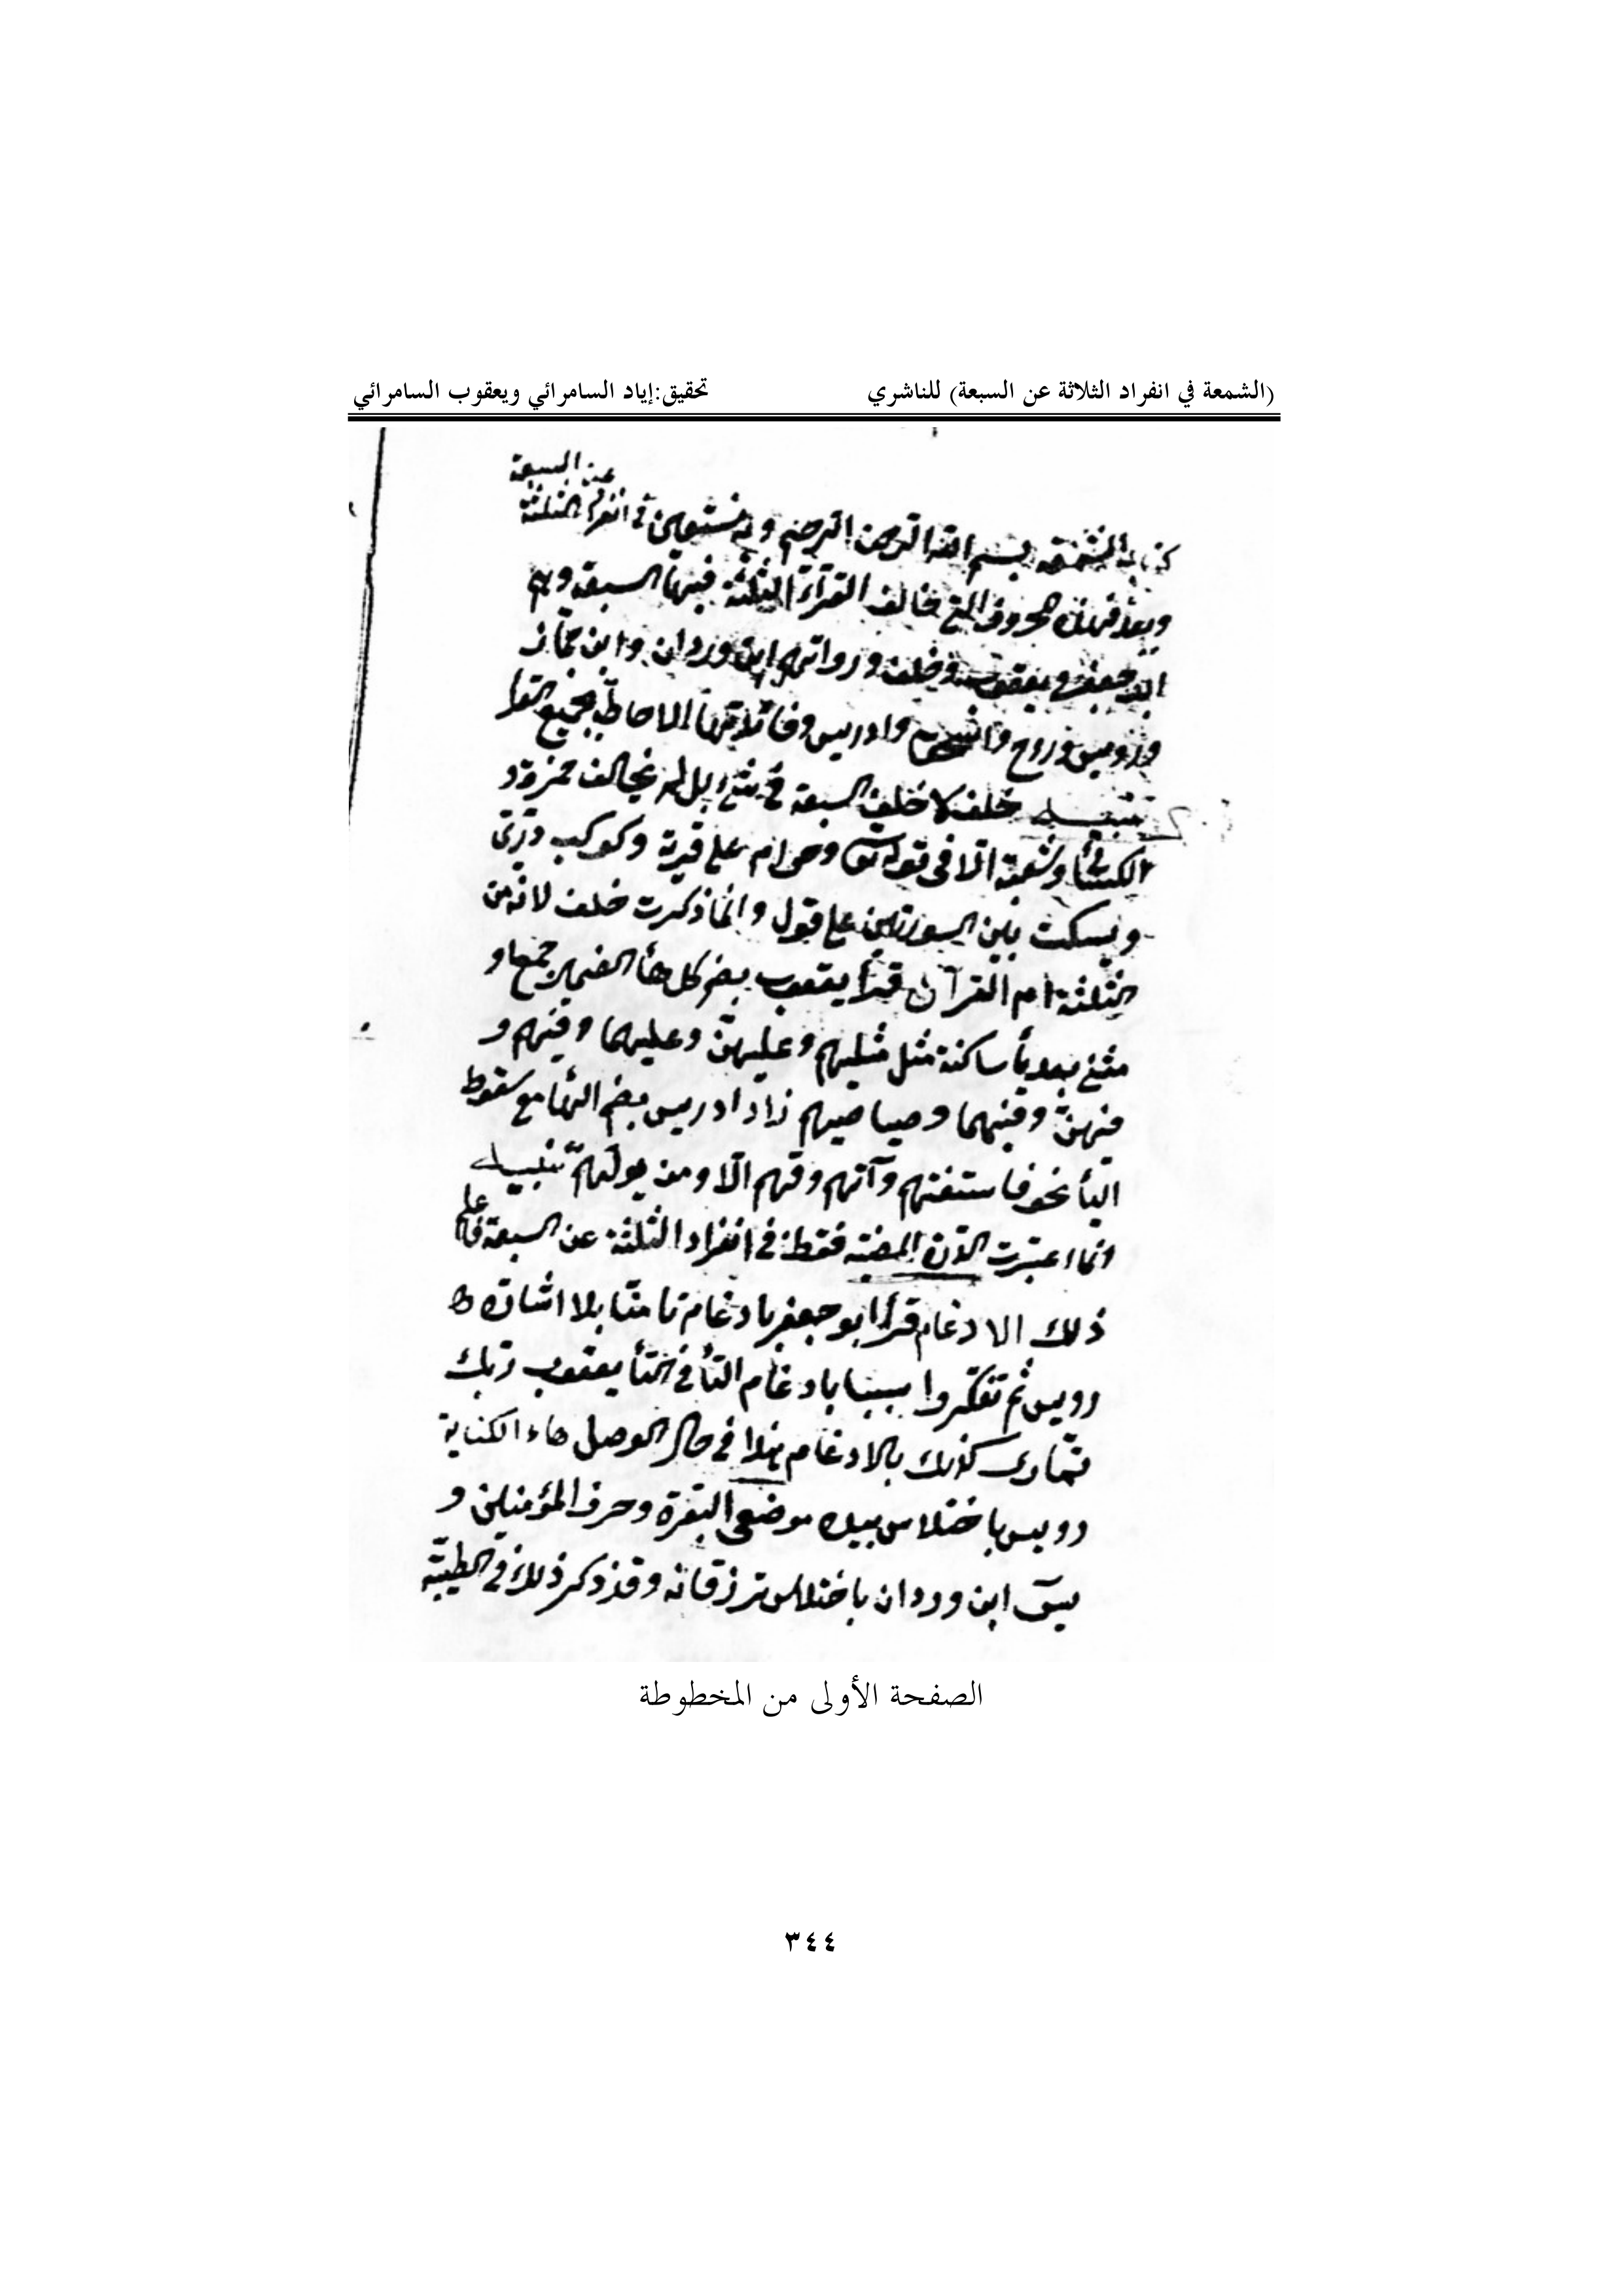 (الشمعة في انفراد الثلاثة عن السبعة) للناشري تحقيق:إياد السامرائي ويعقوب السامرائي
عن السبعة
كتاب الشمعة بسم الله الرحمن الرحيم وبه نستعين في انفراد الثلثة
وبعد فهذه الحروف التي خالف القرآءة الثلثة فيها السبعة وهم
ابو جعفر ويعقوب وخلف ورواتهم ابن وردان وابن جماز
ورويس وروح واسحق وادريس وفائدتها الاحاطة بجميع القرا
تنبيه خلف لا خلف السبعة في شئ بل لم يخالف حمزة و
الكسائي وشعبة الا في قوله وحرام على قرية وكوكب درّيّ
ويسكت بين السورتين على قول وانما ذكرت خلف لانه من
الثلثة ام القرآن قرأ يعقوب بضم كل هأ الضمير جمعا و
مثنى بعد يأ ساكنة مثل مثليهم وعليهنّ وعليهما وفيهم و
فيهنّ وفيهما وصياصيهم زاد ادريس بضم الهأ مع سقوط
اليأ نحو فاستفتهم وآتهم وقهم الّا ومن يولّهم تنبيه
انما اعتبرت الدّرة المضيّة فقط في انفراد الثلثة عن السبعة فاعلم
ذلك الادغام قرأ ابو جعفر بادغام تامنّا بلا اشارة
رويس ثم تفكّروا سبا بادغام التأ في التأ يعقوب ربّك
تّمارى كذلك بالادغام هذا في حال الوصل هاء الكناية
رويس باختلاس بيده موضعي البقرة وحرف المؤمنين و
يسۤ ابن وردان باختلاس ترزقانه وقد ذكر ذلك في الطيبة
الصفحة الأولى من المخطوطة
٣٤٤